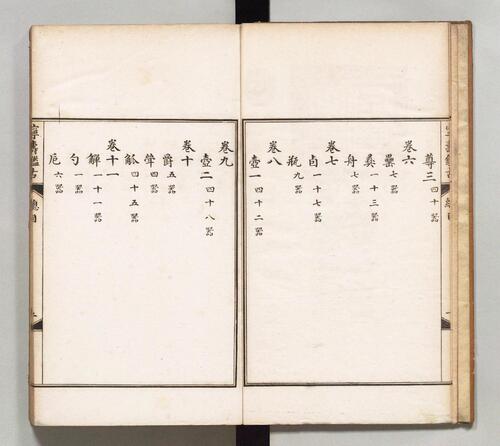 尊三 四十器
卷六
罍 七器
彝 一十三器
舟 七器
卷七
卣 一十七器
瓶 九器
卷八
壺一 四十二器
卷九
壺二 四十八器
卷十
爵 五器
斝 四器
觚 四十五器
卷十一
觶 一十一器
勺 一器
巵 六器
寧壽鑑古
總目